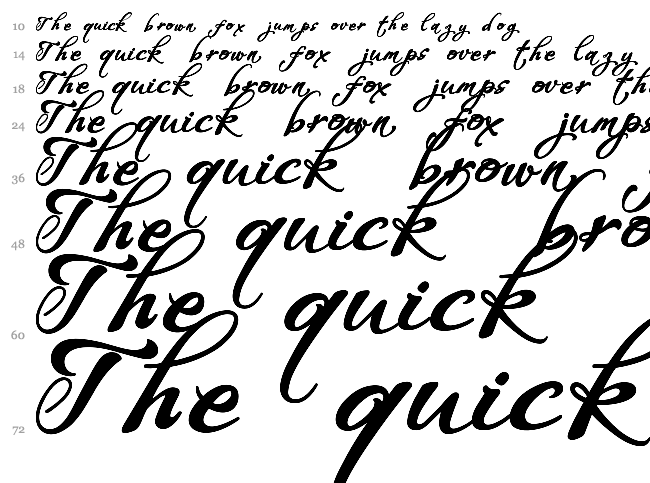 10 The quick brown fox jumps over the lazy dog
14 The quick brown fox jumps over the lazy
18 The quick brown fox jumps over th
24 The quick brown fox jumps
36 The quick brown
48 The quick bro
60 The quick
72 The quick